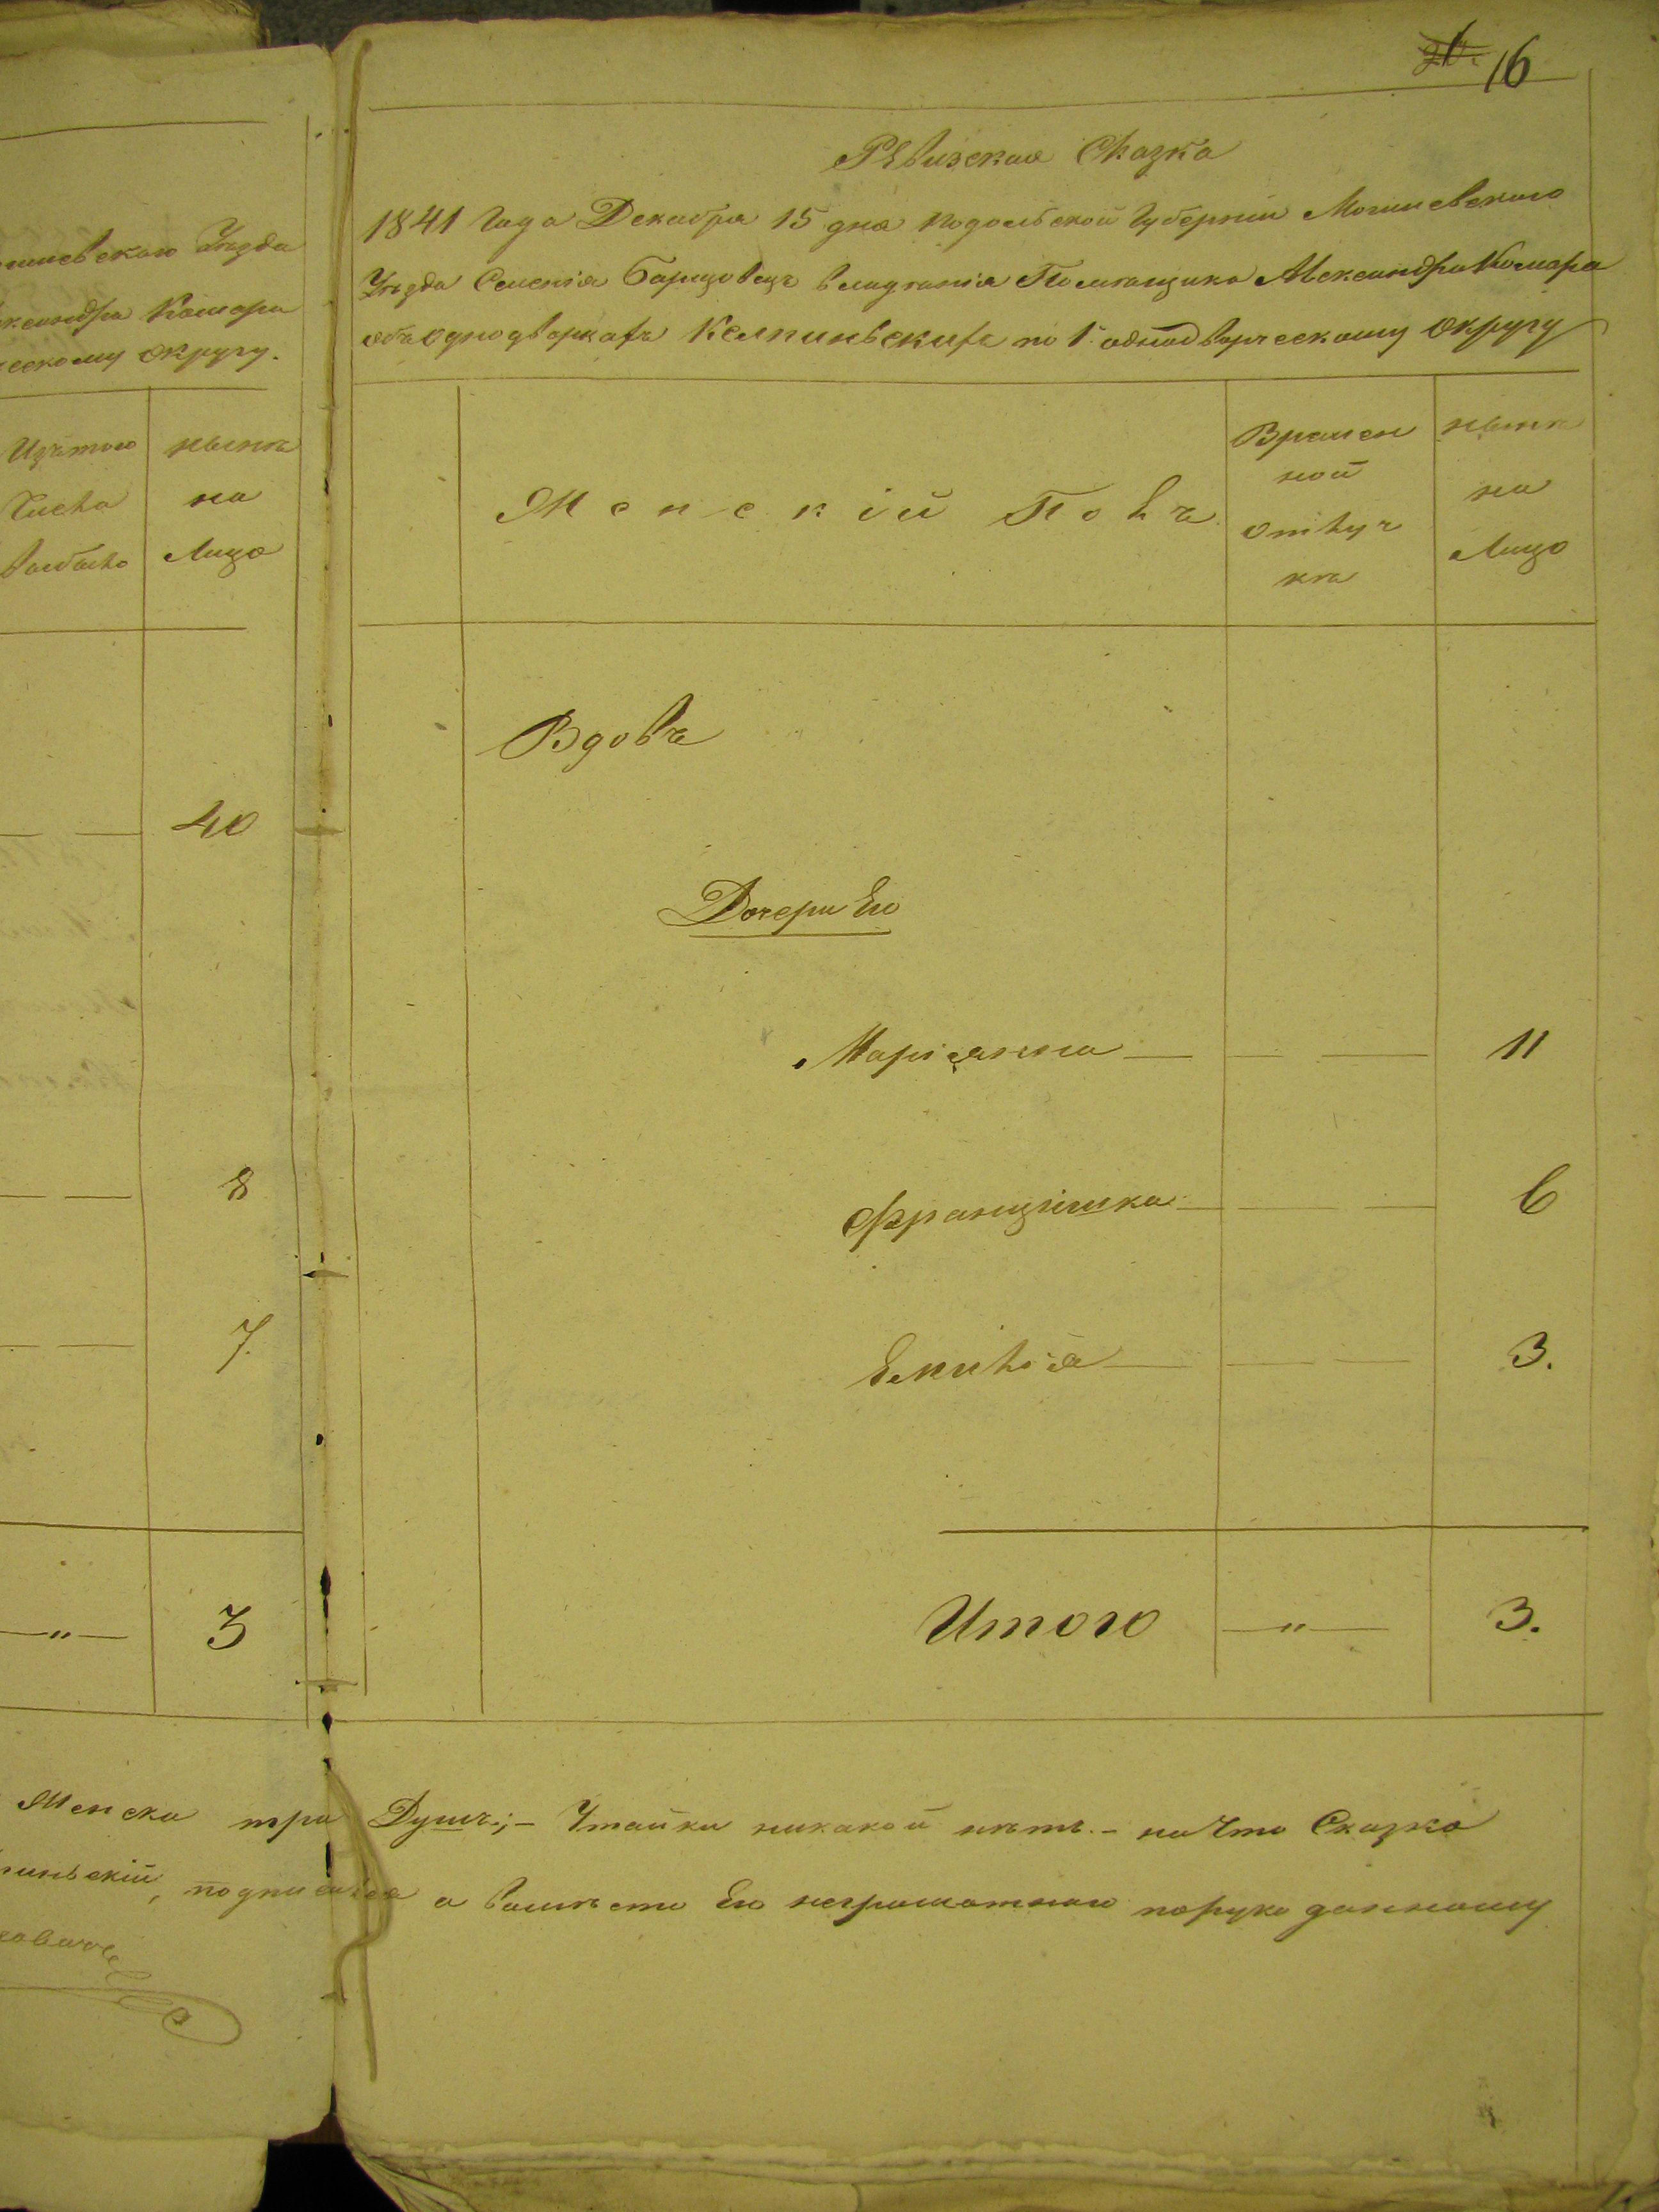 16
Ревизская Сказка
1841 Года Декабря 15 дня Подольской Губерніи Могилевского
Уѣзда Селенія Борщовецъ владѣнія Помѣщика Александра Комара
объ однодворкахъ Келпиньскихъ по 1 однодворческому округу
Женскій Полъ
Времен
ной
отлуч
кѣ
нынѣ
на
Лицо
Вдовъ
Дочери Его
Маріянна — — — 11
Францішка — — — 6
Емилія — — — 3.
Итого — " — 3.
Душъ; – Утайки никакой нѣтъ. – на что Сказка
а вмѣсто Его неграмотного поруко данному
Уѣзда
ксандра Комара
ческому округу.
Изътого
Числа
выбыло
нынѣ
на
Лицо
— — 40
— — 8
— — 7.
— " — 3
Женска три
пиньскій, подписался